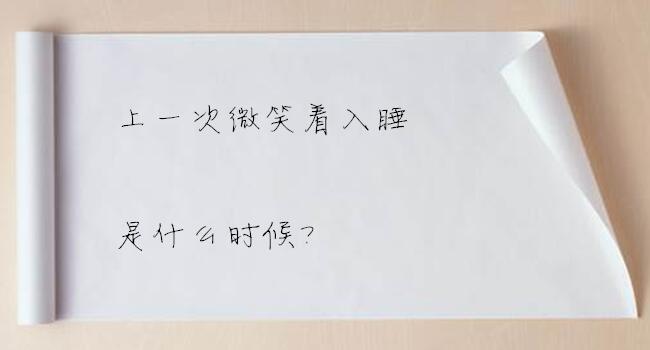 上一次微笑着入睡
是什么时候?